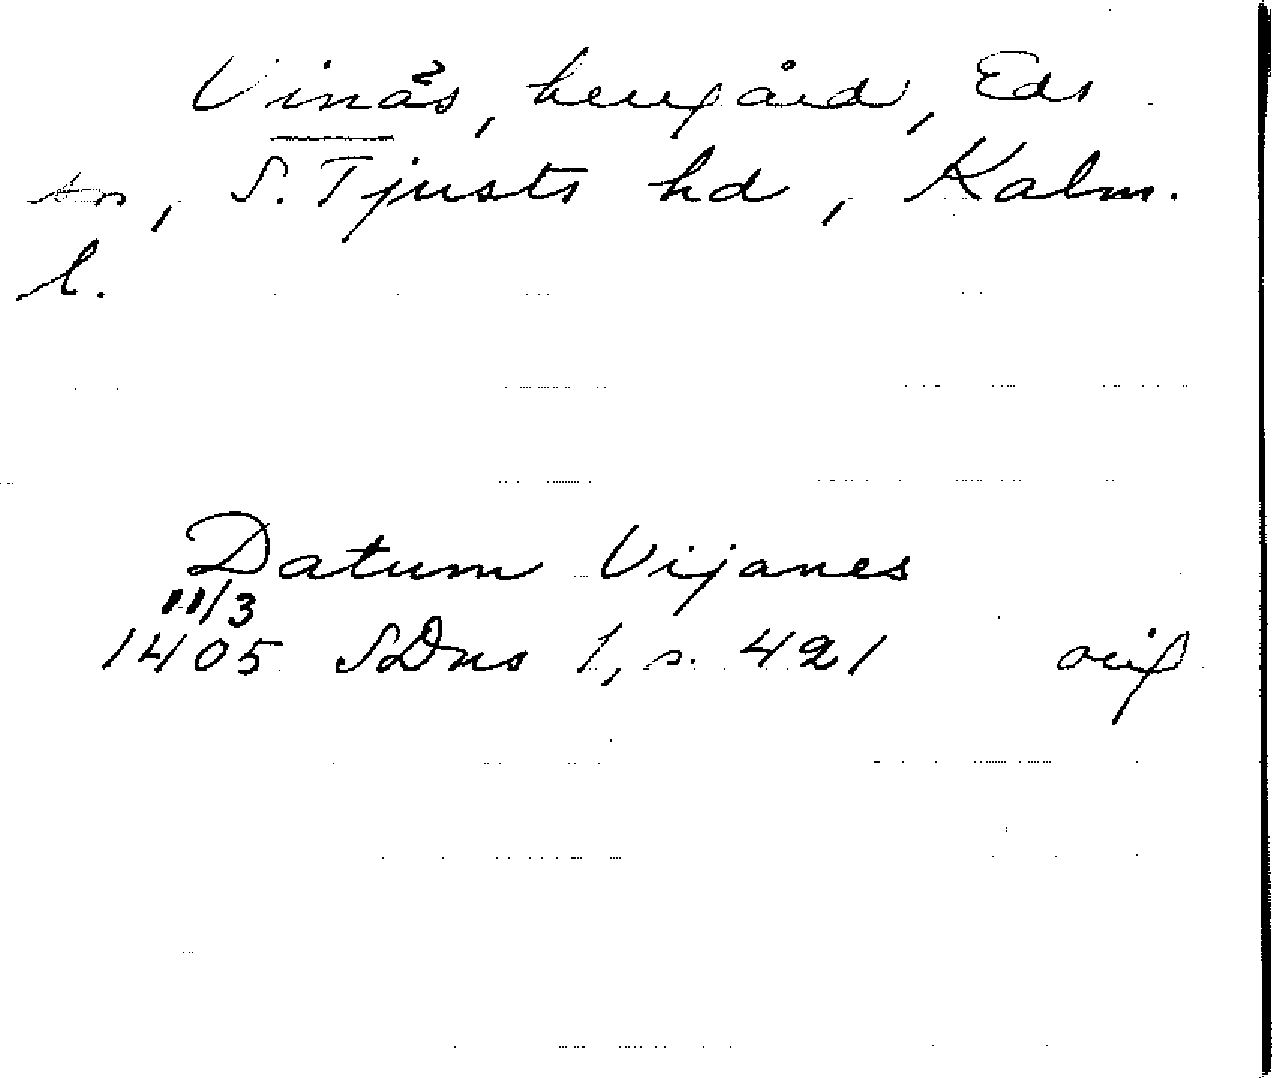 Vinäs, herrgård, Eds
sn, S. Tjusts hd, Kalm.
l.
Datum Vijanes
11/3
1405 SDns 1, s. 421 orig